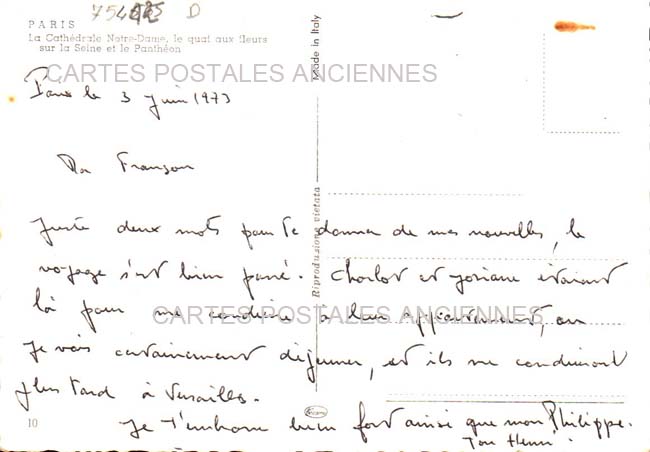 PARIS
La Cathédrale Notre-Dame, le quai aux fleurs
sur la Seine et le Panthéon
CARTES POSTALES ANCIENNES
Made in Italy
Paris le 3 Juin 1973
Ma
Juste deux mots pour te donner de mes nouvelles, le
voyage s'est bien passé. Charlot et Josiane étaient
là pour me conduire à leur appartement, ou
CARTES POSTALES ANCIENNES
Je vais certainement déjeuner, et ils me conduiront
plus tard à Versailles.
Je t'embrasse bien fort ainsi que mon Philippe.
Ton Henri.
Riproduzione vietata
10